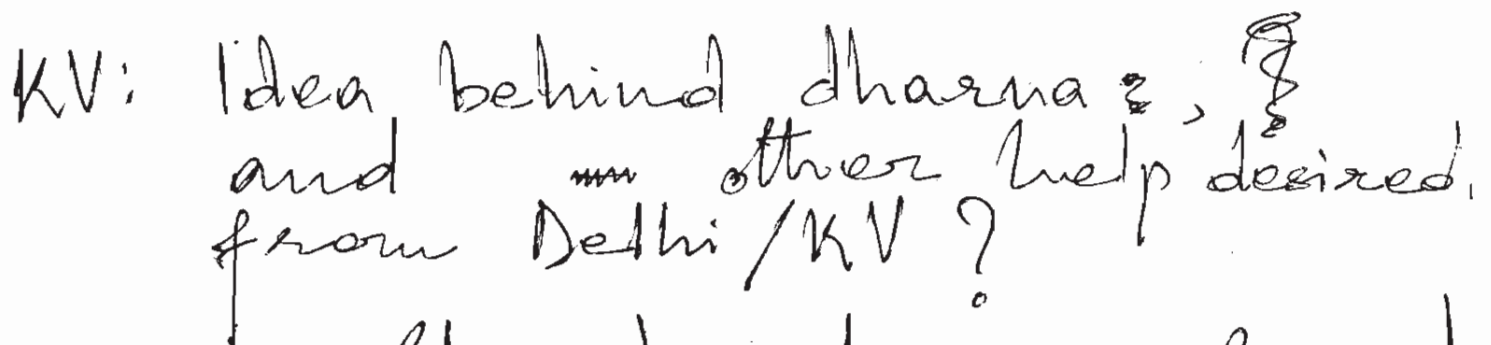 KV: Idea behind dharna,
and other help desired
from Delhi/KV?